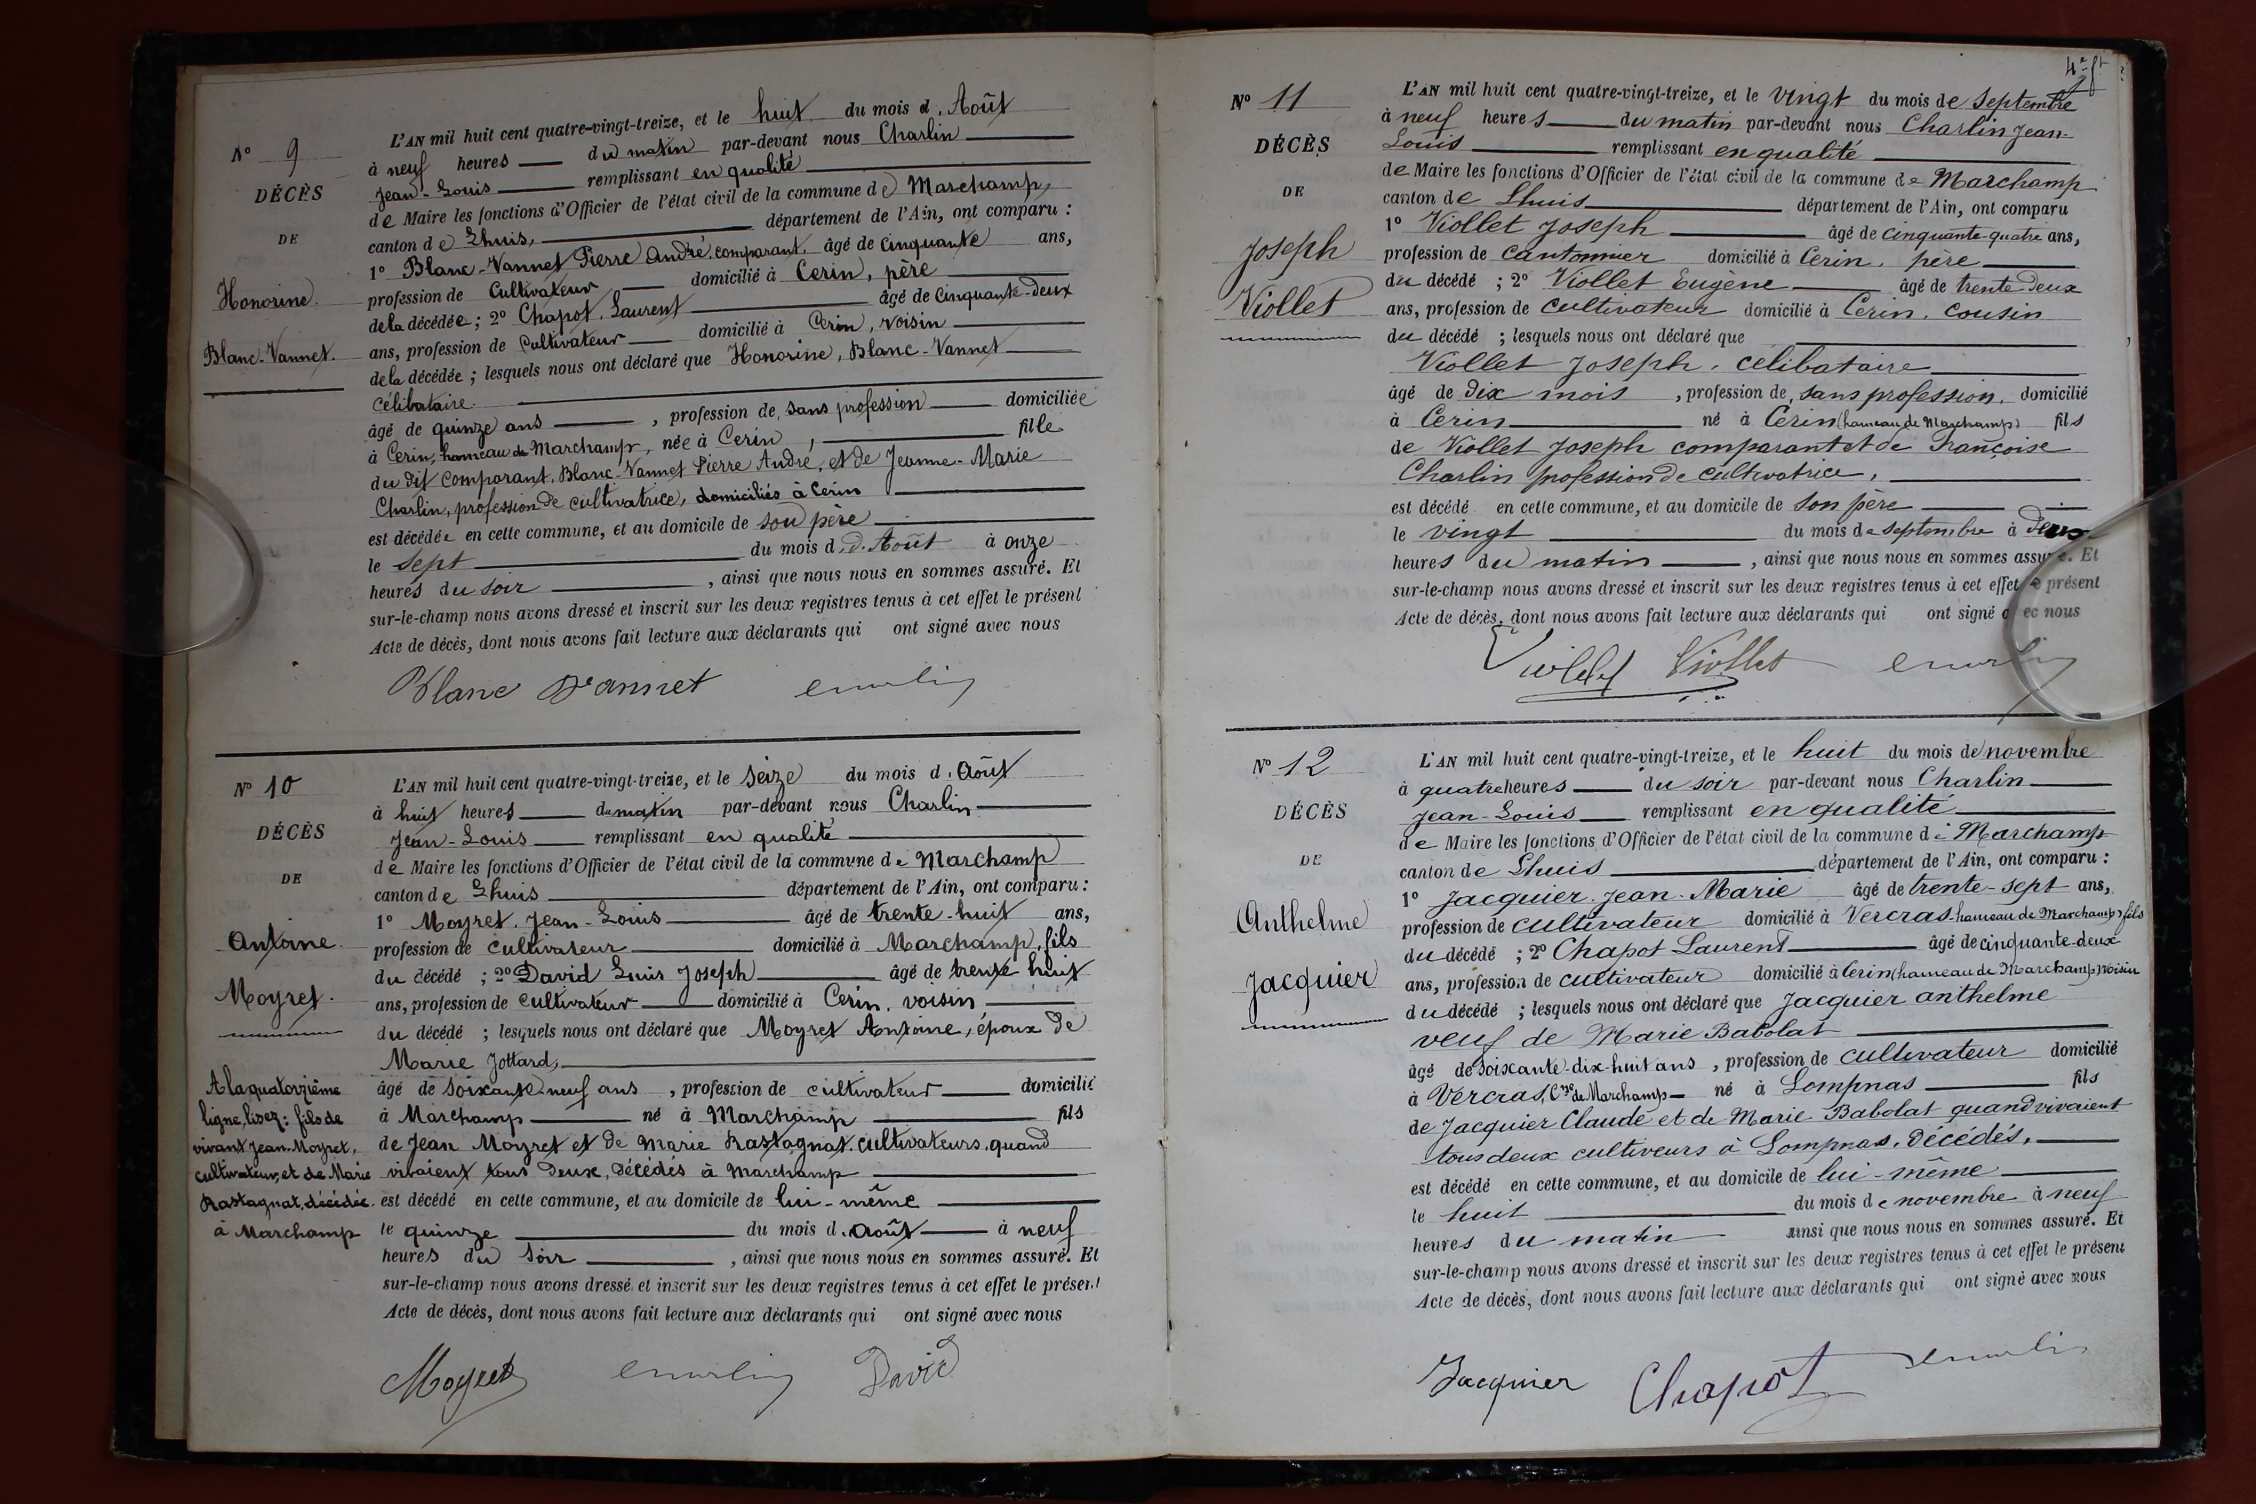 L'AN mil huit cent quatre-vingt-treize, et le huit du mois d'Août
N° 9
à neuf heures du matin par-devant nous Charlin
DÉCÈS
Jean-Louis remplissant en qualité
de Maire les fonctions d'Officier de l'état civil de la commune de Marchamp,
DE
canton de Lhuis, département de l'Ain, ont comparu :
1° Blanc-Vannet Pierre André, comparant, âgé de cinquante ans,
Honorine
profession de cultivateur domicilié à Cerin, père
de la décédée ; 2° Chapot, Laurent âgé de cinquante-deux
Blanc-Vannet.
ans, profession de cultivateur domicilié à Cerin, voisin
de la décédée ; lesquels nous ont déclaré que Honorine, Blanc-Vannet
célibataire
âgé de quinze ans , profession de sans profession domiciliée
à Cerin, hameau de Marchamp, née à Cerin, fille
du dit comparant, Blanc-Vannet Pierre André, et de Jeanne-Marie
Charlin, profession de cultivatrice, domiciliés à Cerin
est décédée en cette commune, et au domicile de son père
le sept du mois d. d'Août à onze
heures du soir , ainsi que nous nous en sommes assuré. Et
sur-le-champ nous avons dressé et inscrit sur les deux registres tenus à cet effet le présent
Acte de décès, dont nous avons fait lecture aux déclarants qui ont signé avec nous
Blanc Vannet Charlin
N° 10
L'AN mil huit cent quatre-vingt-treize, et le seize du mois d'Août
à huit heures du matin par-devant nous Charlin
DÉCÈS
Jean-Louis remplissant en qualité
de Maire les fonctions d'Officier de l'état civil de la commune de Marchamp
DE
canton de Lhuis département de l'Ain, ont comparu :
1° Moyret, Jean-Louis âgé de trente-huit ans,
Antoine
profession de cultivateur domicilié à Marchamp, fils
du décédé ; 2° David Louis Joseph âgé de trente huit
Moyret.
ans, profession de cultivateur domicilié à Cerin, voisin
du décédé ; lesquels nous ont déclaré que Moyret Antoine, époux de
Marie Jottard,
A la quatorzième
ligne, lisez : fils de
vivant Jean Moyret,
cultivateur, et de Marie
Rastagnat, décédée
à Marchamp
âgé de soixante-neuf ans , profession de cultivateur domicilié
à Marchamp né à Marchamp fils
de Jean Moyret et de Marie Rastagnat, cultivateurs, quand
vivaient tous deux, décédés à Marchamp
est décédé en cette commune, et au domicile de lui-même
le quinze du mois d'Août à neuf
heures du soir , ainsi que nous nous en sommes assuré. Et
sur-le-champ nous avons dressé et inscrit sur les deux registres tenus à cet effet le présent
Acte de décès, dont nous avons fait lecture aux déclarants qui ont signé avec nous
Moyret Charlin David
N° 11
L'AN mil huit cent quatre-vingt-treize, et le vingt du mois de septembre
à neuf heures du matin par-devant nous Charlin Jean-
DÉCÈS
Louis remplissant en qualité
de Maire les fonctions d'Officier de l'état civil de la commune de Marchamp
DE
canton de Lhuis département de l'Ain, ont comparu
1° Viollet Joseph âgé de cinquante-quatre ans,
Joseph
profession de cantonnier domicilié à Cerin, père
du décédé ; 2° Viollet Eugène âgé de trente-deux
Viollet
ans, profession de cultivateur domicilié à Cerin, cousin
du décédé ; lesquels nous ont déclaré que
Viollet Joseph, célibataire
âgé de dix mois , profession de, sans profession, domicilié
à Cerin né à Cerin (hameau de Marchamp) fils
de Viollet Joseph comparant et de Françoise
Charlin profession de cultivatrice,
est décédé en cette commune, et au domicile de son père
le vingt du mois de septembre à deux
heures du matin , ainsi que nous nous en sommes assuré. Et
sur-le-champ nous avons dressé et inscrit sur les deux registres tenus à cet effet le présent
Acte de décès, dont nous avons fait lecture aux déclarants qui ont signé avec nous
Viollet Viollet Charlin
N° 12
L'AN mil huit cent quatre-vingt-treize, et le huit du mois de novembre
à quatre heures du soir par-devant nous Charlin
DÉCÈS
Jean-Louis remplissant en qualité
de Maire les fonctions d'Officier de l'état civil de la commune de Marchamp
DE
canton de Lhuis département de l'Ain, ont comparu :
1° Jacquier Jean-Marie âgé de trente-sept ans,
Anthelme
profession de cultivateur domicilié à Vercras, hameau de Marchamp, fils
du décédé ; 2° Chapot Laurent âgé de cinquante-deux
Jacquier
ans, profession de cultivateur domicilié à Cerin (hameau de Marchamp) voisin
du décédé ; lesquels nous ont déclaré que Jacquier anthelme
veuf de Marie Babolat
âgé de soixante-dix-huit ans , profession de cultivateur domicilié
à Vercras, Cne de Marchamp né à Lompnas fils
de Jacquier Claude et de Marie Babolat quand vivaient
tous deux cultiveurs à Lompnas, décédés,
est décédé en cette commune, et au domicile de lui-même
le huit du mois de novembre à neuf
heures du matin ainsi que nous nous en sommes assuré. Et
sur-le-champ nous avons dressé et inscrit sur les deux registres tenus à cet effet le présent
Acte de décès, dont nous avons fait lecture aux déclarants qui ont signé avec nous
Jacquier Chapot Charlin